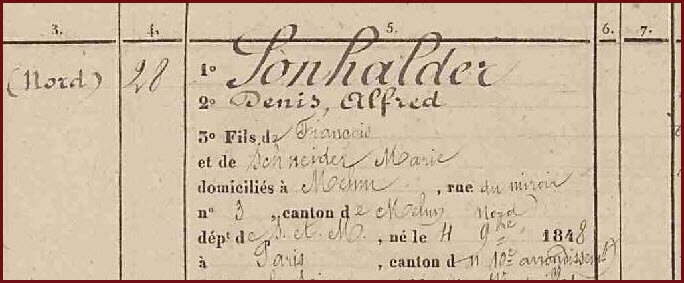 3. 4. 5. 6. 7.
(Nord) 28 1º Sonhalder
2º Denis, Alfred
3º Fils de François
et de Schneider Marie
domiciliés à Melun, rue du miroir
nº 3, canton de Melun Nord
dépt de S. et M., né le 4 9bre 1848
à Paris, canton d 10e arrondissemt